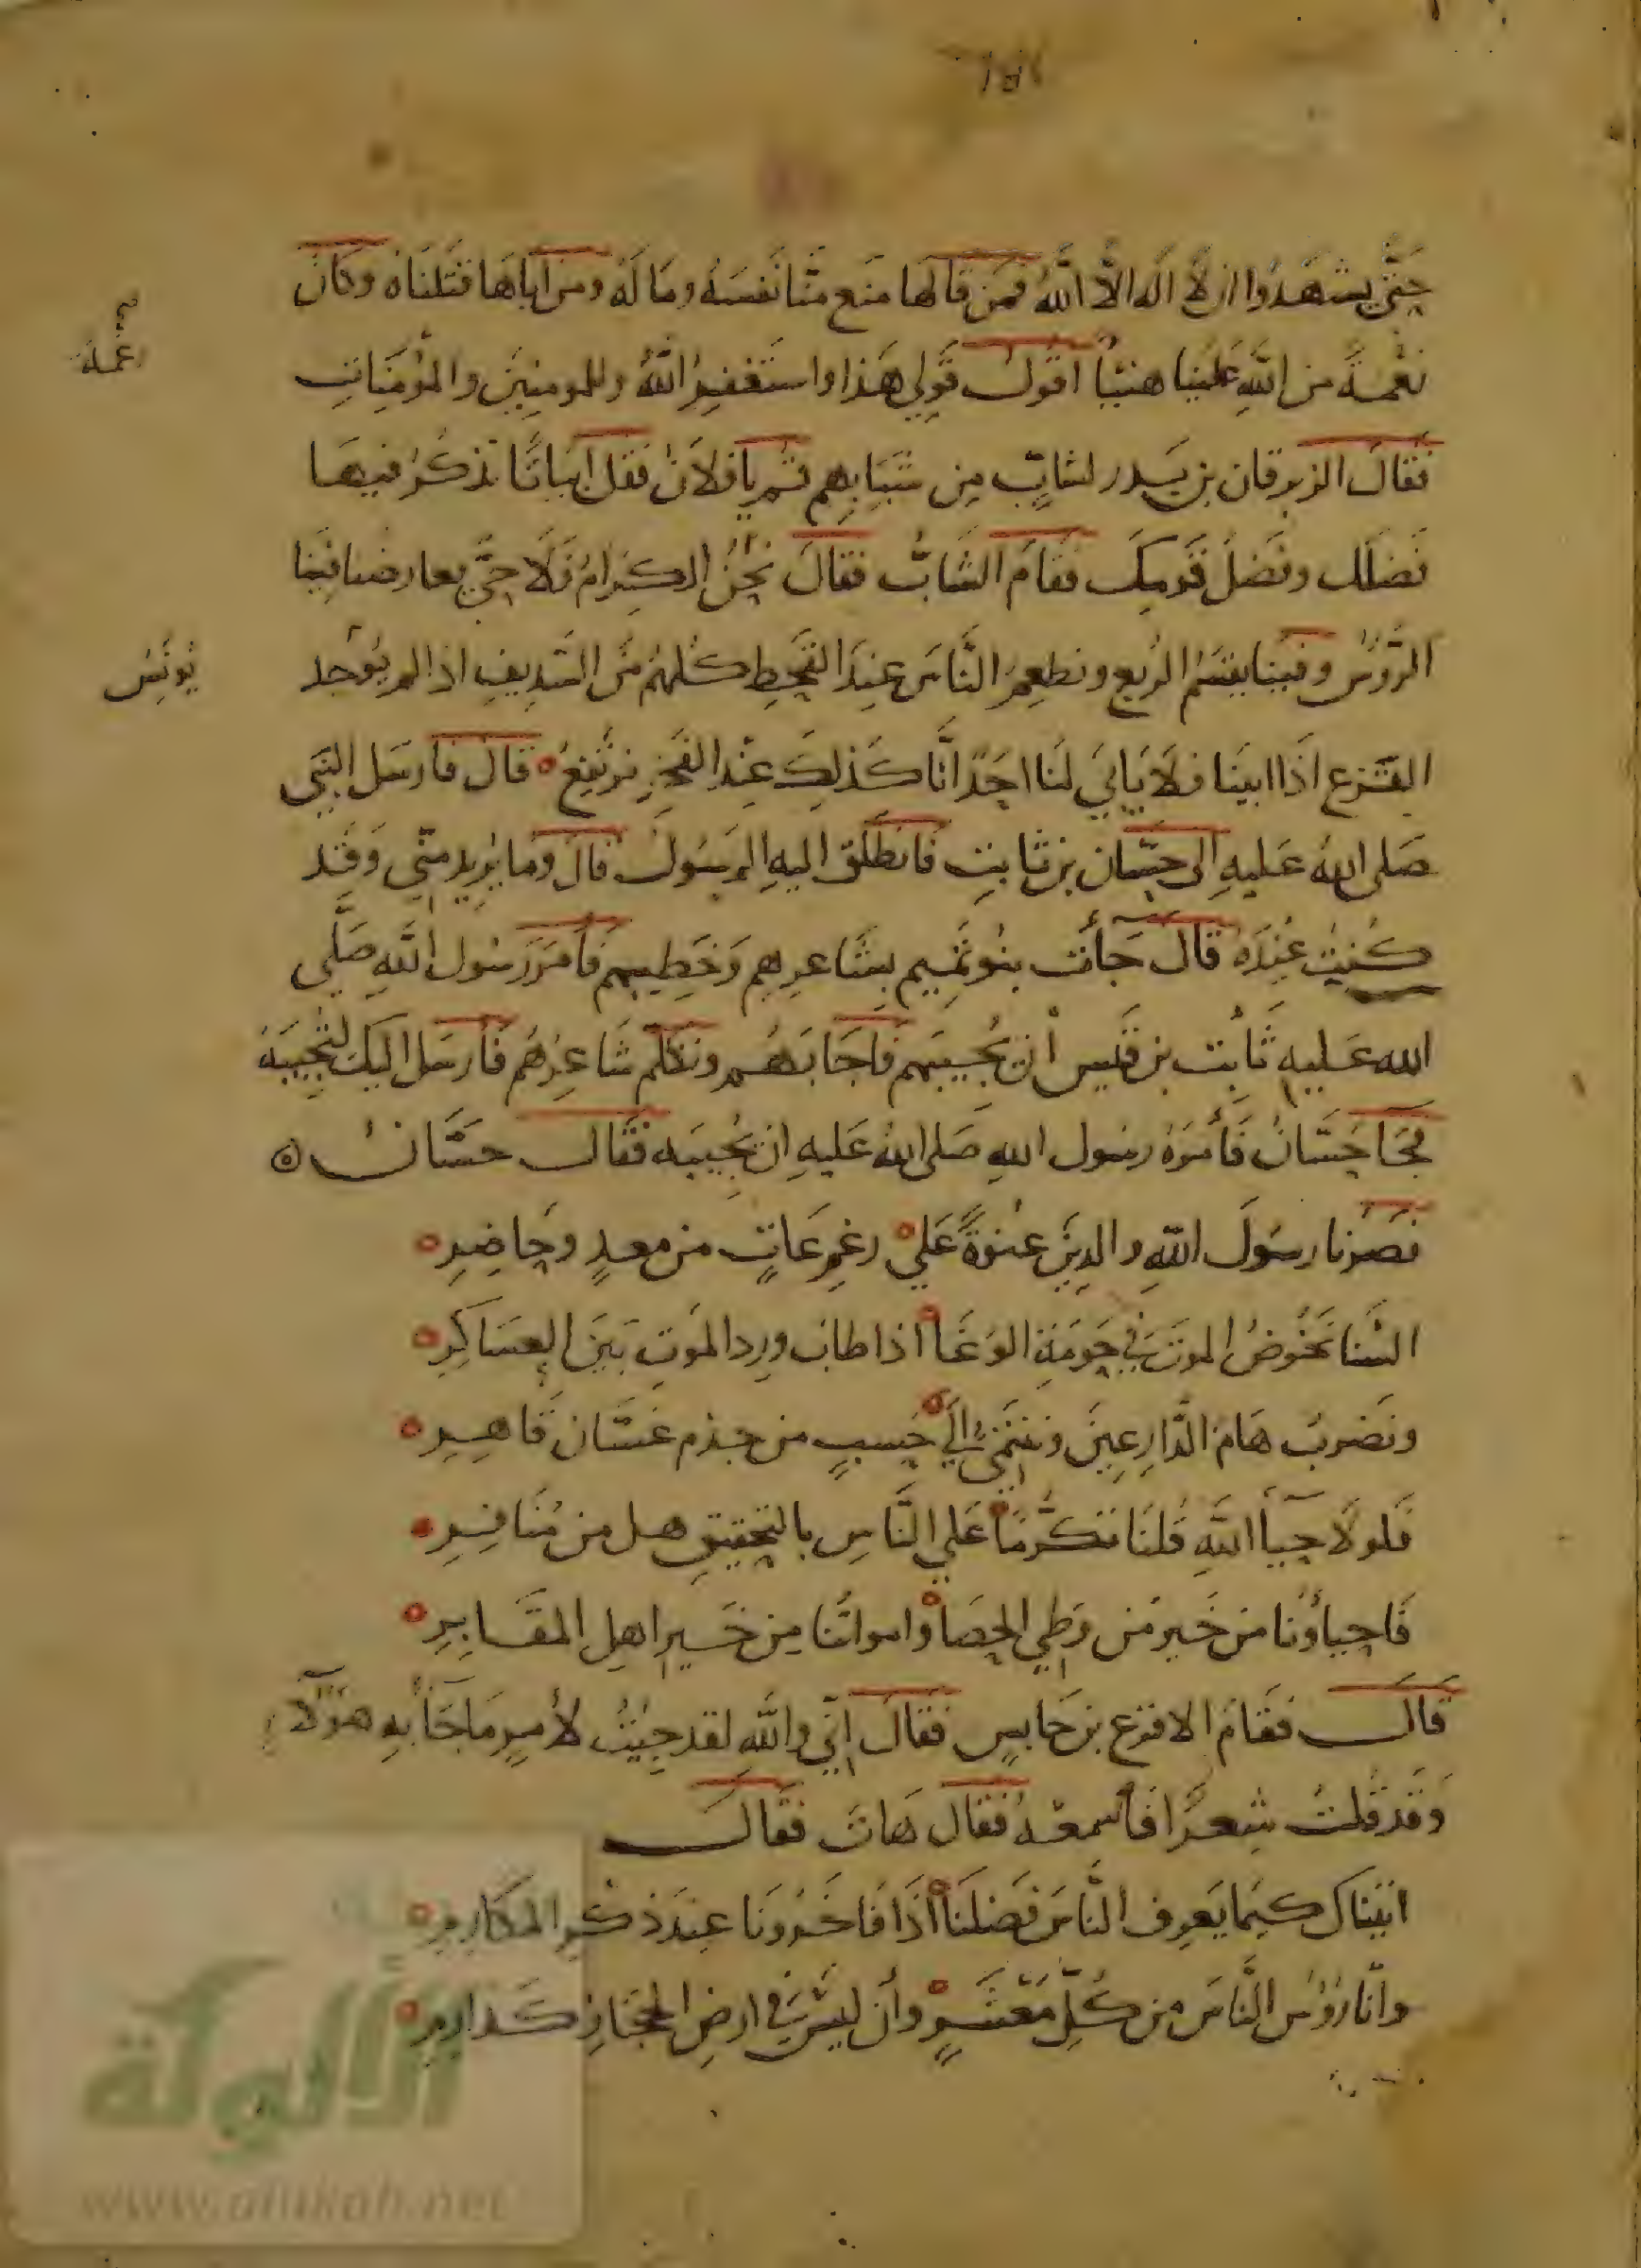 حَتَّى يشهَدُوا ان لَا اله الّا اللّهُ فمَن قالَها منَع منّا نَفسَهُ ومَا لَهُ ومن اباهَا قتَلنَاهُ وكانَ
نِعْمَةً من اللّهِ عَلَينا هنيًا اقولُ قَولي هَذا واستَغفِرُ اللّهَ وللمومِنِينَ والمُؤمِنَاتِ
فقالَ الزبرقان بن بَدر لشابٍّ مِن شَبَابِهِم قُم يا فلانُ فقل ابيَاتًا تذكُرُ فيهَا
فَضلَك وفَضلَ قَومِكَ فقامَ الشَابُّ فقالَ نَحْنُ الكِرَامُ فَلَا حَيَّ يعارضنا فينَا
الرُّؤُسُ وفينا يقسَمُ الرُبع ونطعِمُ النَّاسَ عِندَ القَحْطِ كُلهُمُ مِنَ السَّدِيفِ اذا لم يُوجد
القَزع اذَا ابينَا فلَا يَابَى لنَا احَدٌ انَّا كَذلِكَ عِنْدَ الفَخرِ نرتَفِعُ قال فارسَل النبَي
صَلى اللهُ عَليهِ الى حسّان بن ثابتِ فانطَلقَ اليهِ الرسُولُ فقالَ ومَا يُريد منّي وَقَد
كُنتُ عِندَهُ قالَ جَآئَت بنُو تَمِيم بشَاعرِهِم وَخَطِيبِهم فأمَرَ رَسُول اللَّهِ صَلَّى
الله عَليهِ ثَابت بن قَيس أن يُجيبَهم فَاجَابَهُم وتكلّم شَاعِرُهُم فَأَرسَل اليكَ لتُجِيبَهُ
فجَا حَسّانُ فَأَمَرَهُ رسُول اللهِ صَلى اللهُ عَليهِ ان يُجِيبَه فقَالَ حسَّانُ
نصَرنا رسُولَ اللهِ والدِينَ عنوَةً عَلى رغمِ عَاتٍ من معدٍ وحَاضِرِ
السْنا نَخُوضُ الموتَ في حَومَةِ الوَغَا اذا طاب ورد المَوتِ بَينَ العسَاكِرِ
ونَضربُ هَامَ الدَّارِعِينَ ونَنتَمِي إلَى حَسبٍ من جذم غسَّان قَاهِرِ
فَلولَا حيأ اللَّهِ قُلنَا تكَرُّمًا عَلى النَّاسِ بالتحقِيقِ هل من مُنَافِرِ
فَاحياؤُنا مَن خَير مَن وَطِي الحصَا وامواتُنا مِن خَيرِ اهلِ المقَابِرِ
قَالَ فقَامَ الاقرَع بن حَابسٍ فقَالَ اِنّي واللَّهِ لقد جِئتُ لأمرٍ مَا جَأ بهِ هؤلَآ
وَقَد قُلتُ شِعرًا فاسمعهُ فقَال هَات فقَالَ
اتينَاك كيمَا يَعرف النَّاسَ فَضلَنَا اذَا فَاخَرُونَا عِندَ ذكرِ المكَارِمِ
وانّا رُؤُس النَّاسَ من كُلِّ مَعْشَرٍ وأن ليسَ في ارضِ الحجَازِ كَدارِمِ
نعمة
يُونُس
الألوكة
www.alukah.net